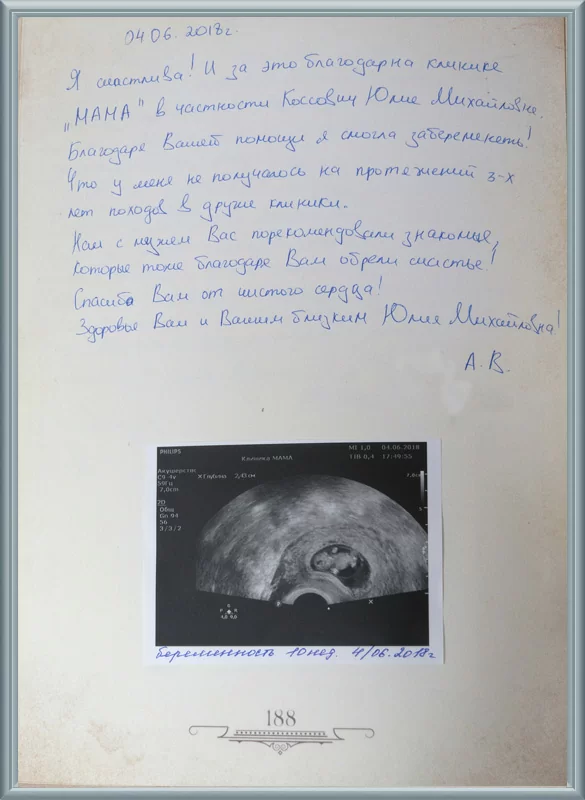 04 06. 2018г.
Я счастлива! И за это благодарна клинике
„МАМА" в частности Коссович Юлие Михайловне.
Благодаре Вашей помощи я смогла забеременеть!
Что у меня не получалось на протяжений 3-х
лет походов в другие клиники.
Нам с мужем Вас порекомендовали знакомые,
которые тоже благодаре Вам обрели счастье!
Спасибо Вам от чистого сердца!
Здоровье Вам и Вашим близким Юлия Михайловна!
А. В.
PHILIPS
Клиника МАМА
MI 1,0 04.06.2018
TIB 0,4 17:49:55
Акушерство
C9 4v
59Гц
7,0cm
X Глубина 2,43 см
2D
Общ
Gn 94
56
3/3/2
беременность 10нед. 4/06.2018г
188